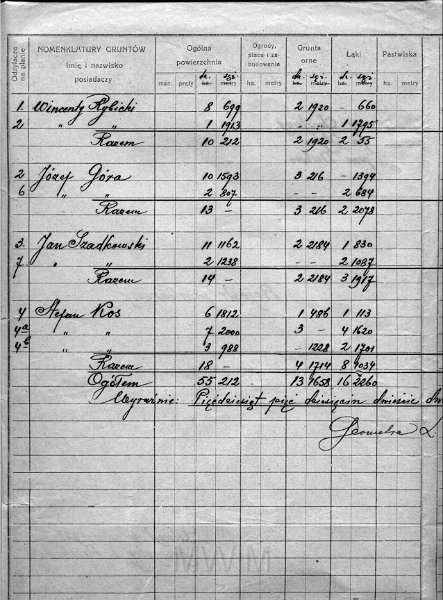 Odsyłacze na planie NOMENKLATURY GRUNTÓW Imię i nazwisko posiadaczy Ogólna powierzchnia Ogrody, place i zabudowania Grunta orne Łąki Pastwiska
mor. pręty ha. metry ha. metry ha. metry ha. metry
1. Wincenty Rybicki 8 699 2 1920 - 660
2 " " 1 1913 " " 1 1795
Razem 10 212 2 1920 2 55
2 Józef Góra 10 1593 3 216 - 1394
6 " " 2 807 - 2 684
Razem 13 - 3 216 2 2078
3. Jan Szadkowski 11 1162 2 2184 1 830
7 " " 2 1238 - 2 1087
Razem 14 - 2 2184 3 1917
4 Stefan Kos 6 1812 1 486 1 113
4a " " 7 2000 3 - 4 1620
4b " " 3 988 - 1228 2 1701
Razem 18 - 4 1714 8 1034
Ogółem 55 212 13 1658 16 2260
Wyraźnie: Pięćdziesiąt pięć dziesięcin dwieście
Geometra
MWM